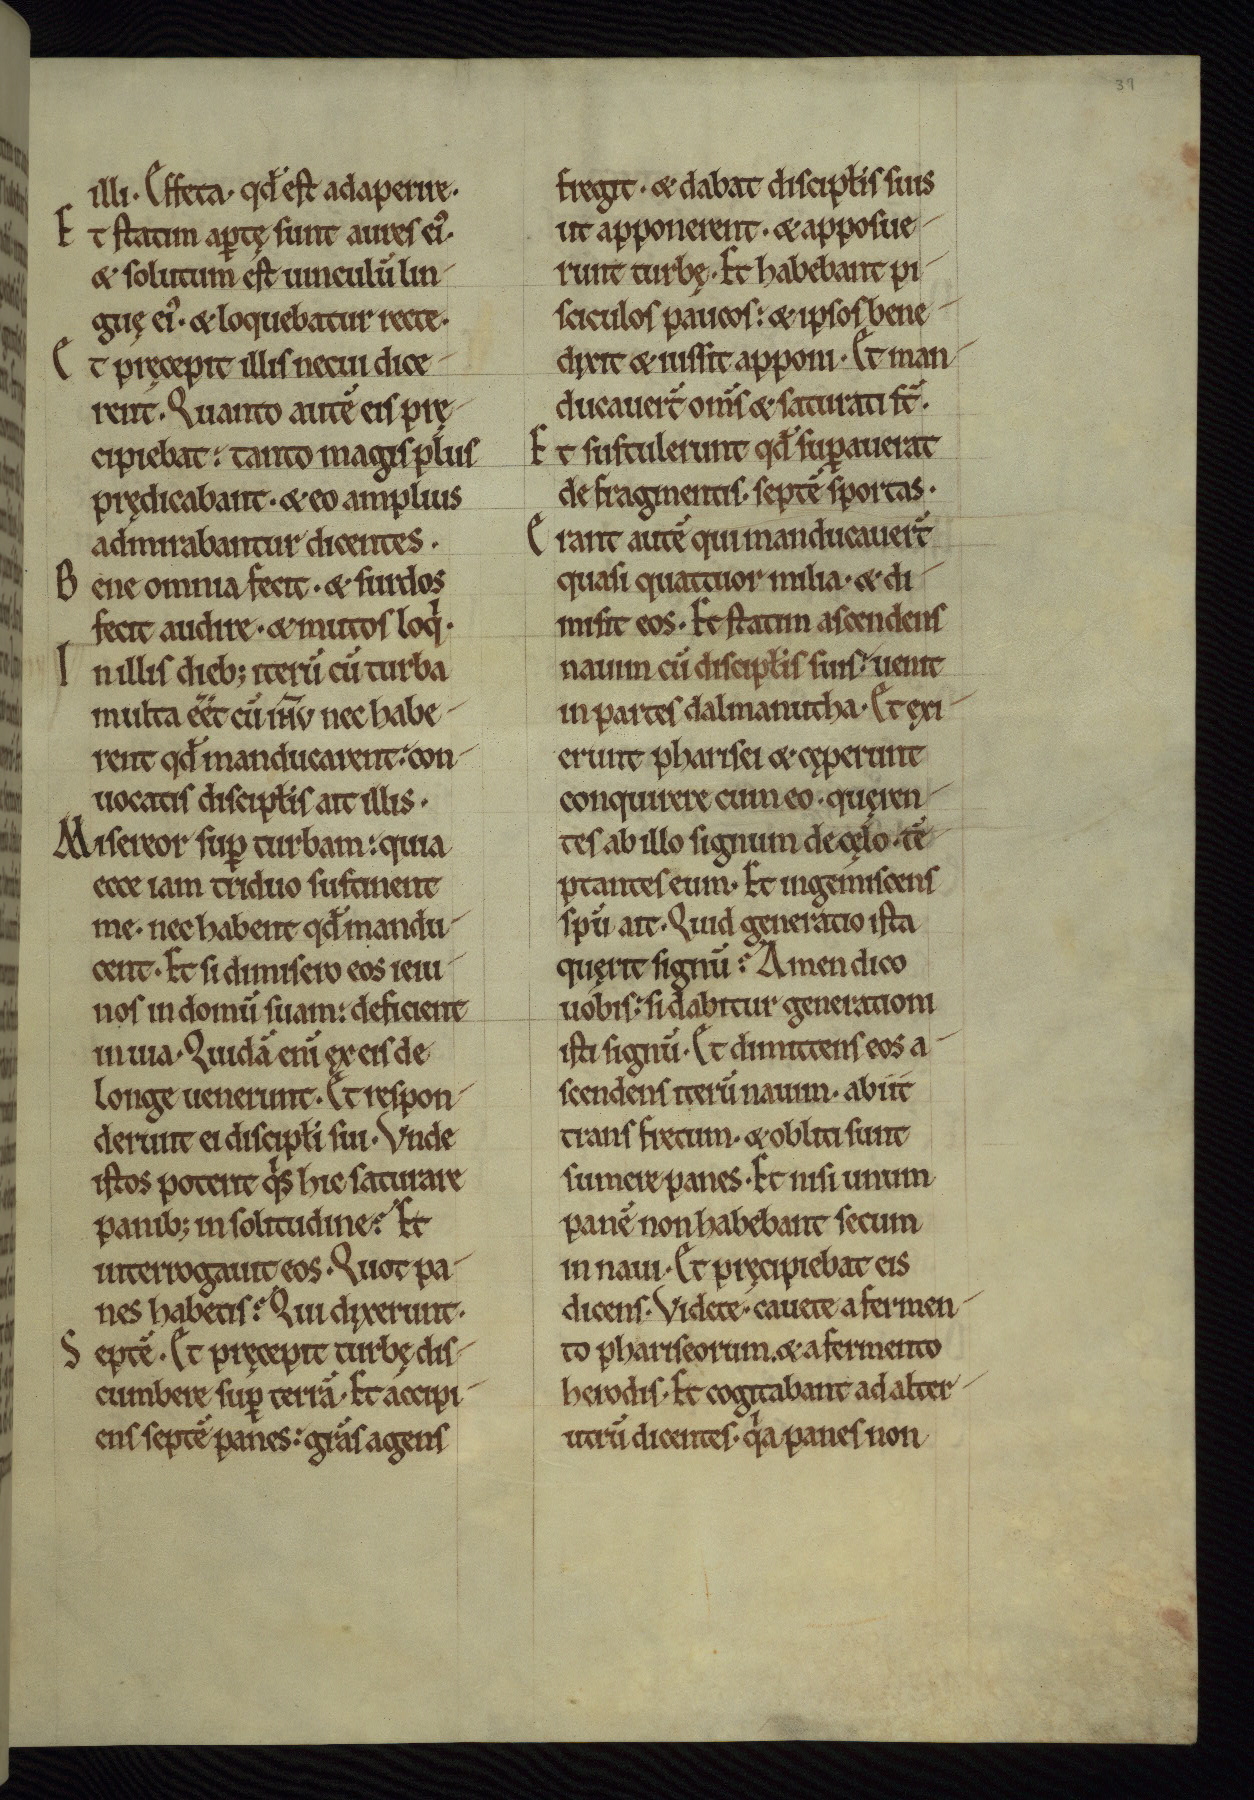 37
illi. Effeta. qđ est adaperire.
Et statim aꝑtę sunt aures eiꝰ.
& solutum est uinculū lin-
guę eiꝰ. & loquebatur recte.
Et pręcepit illis ne cui dice-
rent. Quanto autē eis prę-
cipiebat: tanto magis plus
prędicabant. & eo amplius
admirabantur dicentes.
Bene omnia fecit. & surdos
fecit audire. & mutos loqͥ.
In illis dieb; iterū cū turba
multa eēt cū ihū nec habe-
rent qđ manducarent: con-
uocatis discipłis ait illis.
Misereor suꝑ turbam: quia
ecce iam triduo sustinent
me. nec habent qđ mandu-
cent. Et si dimisero eos ieiu-
nos in domū suam: deficient
in uia. Quidā enī ex eis de
longe uenerunt. Et respon-
derunt ei discipłi sui. Vnde
istos poterit qͥs hic saturare
panib; in solitudine? Et
interrogauit eos. Quot pa-
nes habetis? Qui dixerunt.
Septē. Et pręcepit turbę dis-
cumbere suꝑ terrā. Et accipi-
ens septē panes: grās agens
fregit. & dabat discipłis suis
ut apponerent. & apposue-
runt turbę. Et habebant pi-
sciculos paucos: & ipsos bene-
dixit & iussit apponi. Et man-
ducauert̄ om̄s & saturati st̄.
Et sustulerunt qđ suꝑauerat
de fragmentis. septē sportas.
Erant autē qui manducauert̄
quasi quattuor milia. & di-
misit eos. Et statim ascendens
nauim cū discipłis suis: uenit
in partes dalmanutha. Et exi-
erunt pharisei & cęperunt
conquirere cum eo. quęren-
tes ab illo signum de cęlo. tē-
ptantes eum. Et ingemiscens
spū ait. Quid generatio ista
quęrit signū? Amen dico
uobis: si dabitur generationi
isti signū. Et dimittens eos a-
scendens iterū nauim. abiit
trans fretum. & obliti sunt
sumere panes. Et nisi unum
panē non habebant secum
in naui. Et pręcipiebat eis
dicens. Videte. cauete a fermen-
to phariseorum. & a fermento
herodis. Et cogitabant ad alter-
utrū dicentes. qͥa panes non